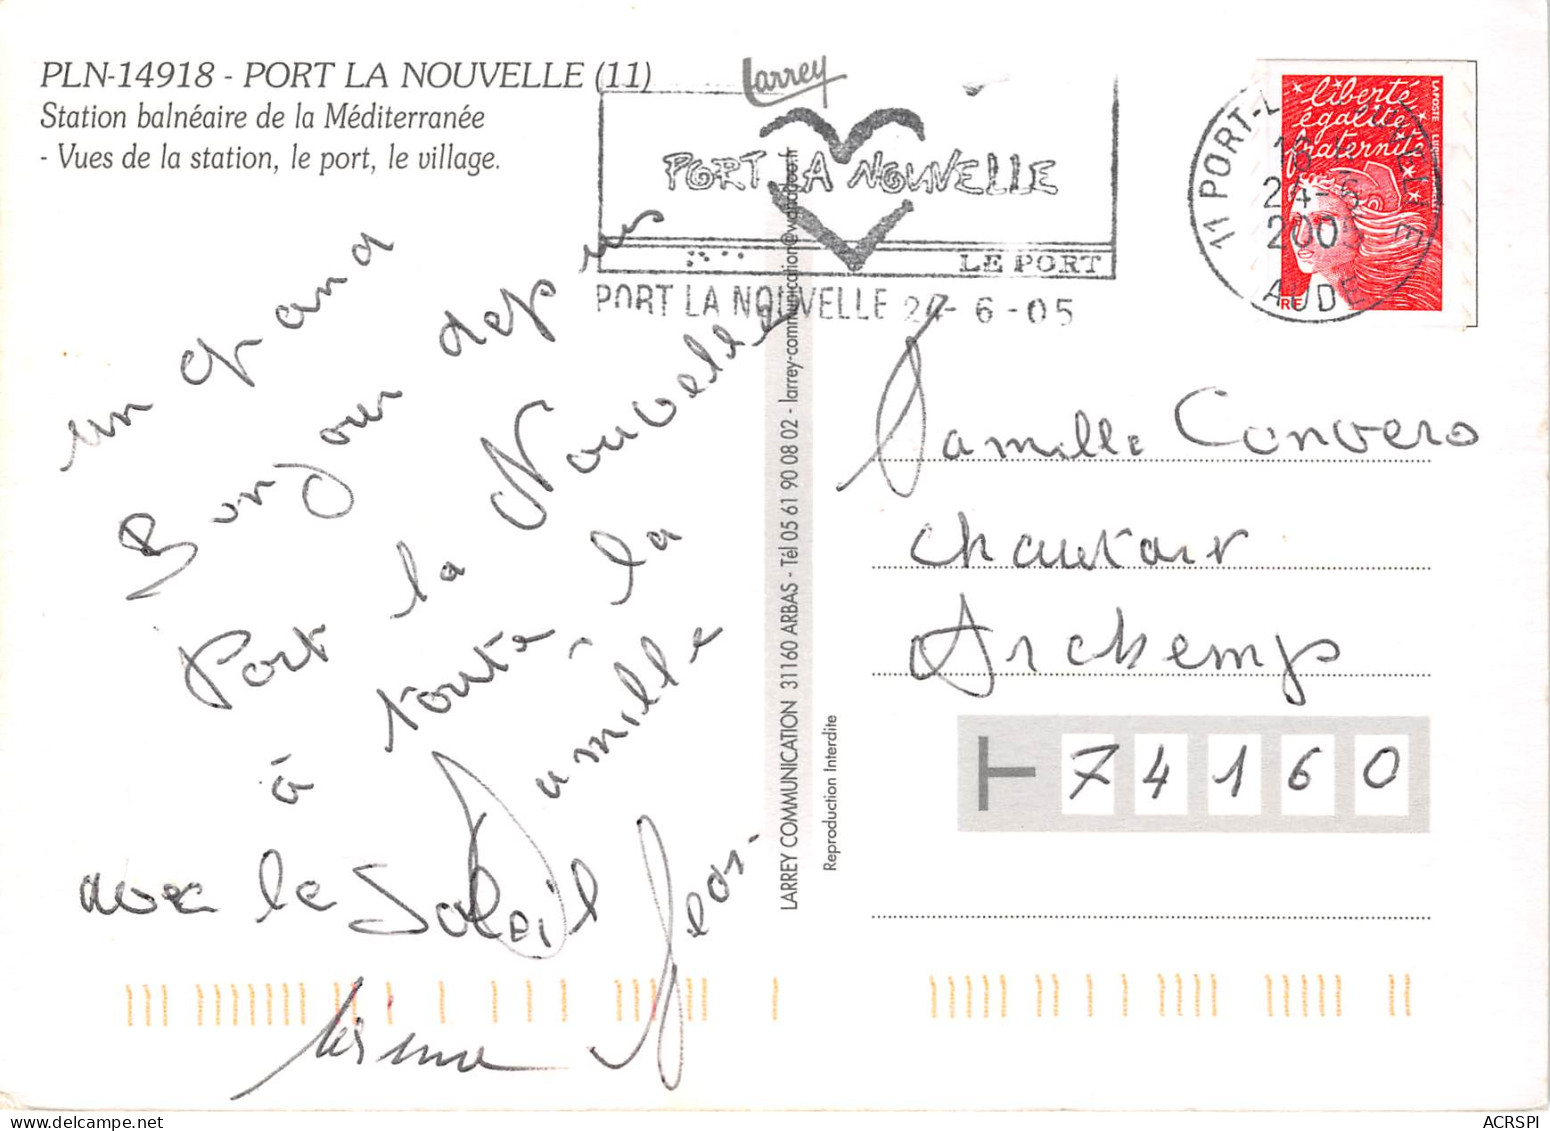 PLN-14918 - PORT LA NOUVELLE (11)
Station balnéaire de la Méditerranée
- Vues de la station, le port, le village.
Larrey
PORT LA NOUVELLE
LE PORT
PORT LA NOUVELLE 24-6-05
11 PORT-L
24-6
200
AUDE
liberté
égalité
fraternité
LAPOSTE
RF
un grand
Bonjour depuis
Port la Nouvelle
à toute la
famille
avec le Soleil
LARREY COMMUNICATION 31160 ARBAS - Tél 05 61 90 08 02 - larrey-communication@wanadoo.fr
Reproduction Interdite
Famille Convers
Chautair
Archemps
74160
ACRSPI